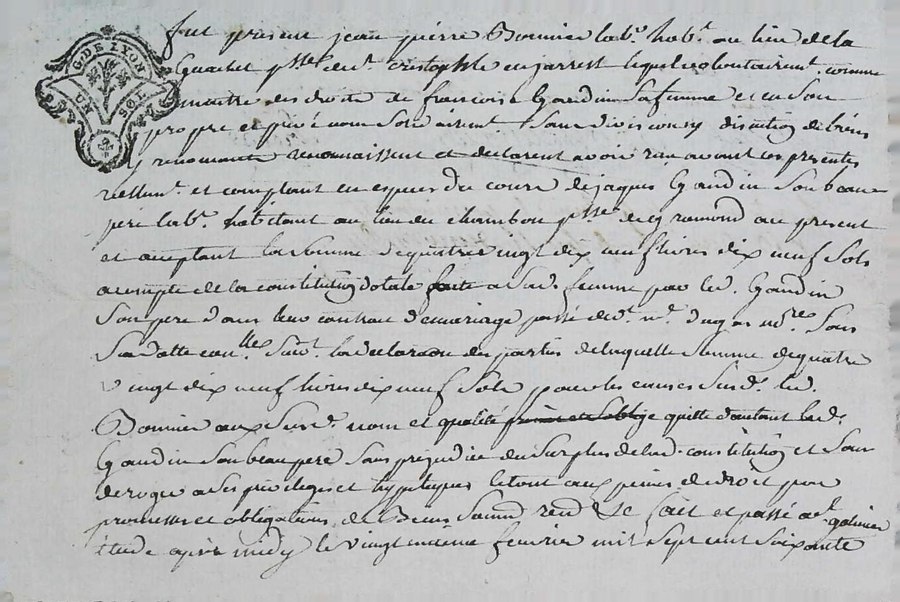 G. DE LYON
UN SOL
fut present jean pierre Bonnier lab.r hab.t au lieu de la
Guachet p.sse de s.t cristophle en jarrest lequel volontairem.t comme
maitre des droits de francoise Gaudin sa femme et en son
propre et privé nom solidairem.t sans division ny discution de biens
y renoncants reconnaissent et declarent avoir reçu avant ces presentes
réellem.t et comptant en especes du cours de jaques Gaudin son beau
pere lab.r habitant au lieu du chambon p.sse de gramond au present
et acceptant la somme de quatre vingt dix neuf livres dix neuf sols
acompte de la constitution dotale faite a sad. femme par led. Gaudin
son pere dans leur contrat de mariage passé devt. m.e dugas no.re sous
sa datte suiv.t la declaraon des parties de laquelle somme de quatre
vingt dix neuf livres dix neuf sols pour les causes susd. led.
Bonnier aux susd. nom et qualité quitte d'autant led.
Gaudin son beau pere sans prejudice du surplus de lad. constitution et sans
deroger a ses privileges et hypoteques le tout aux peines de droit par
promesses et obligations de Biens soumis rend &c fait et passé a s.t galmier
étude après midy le vingt fevrier mil sept cent soixante